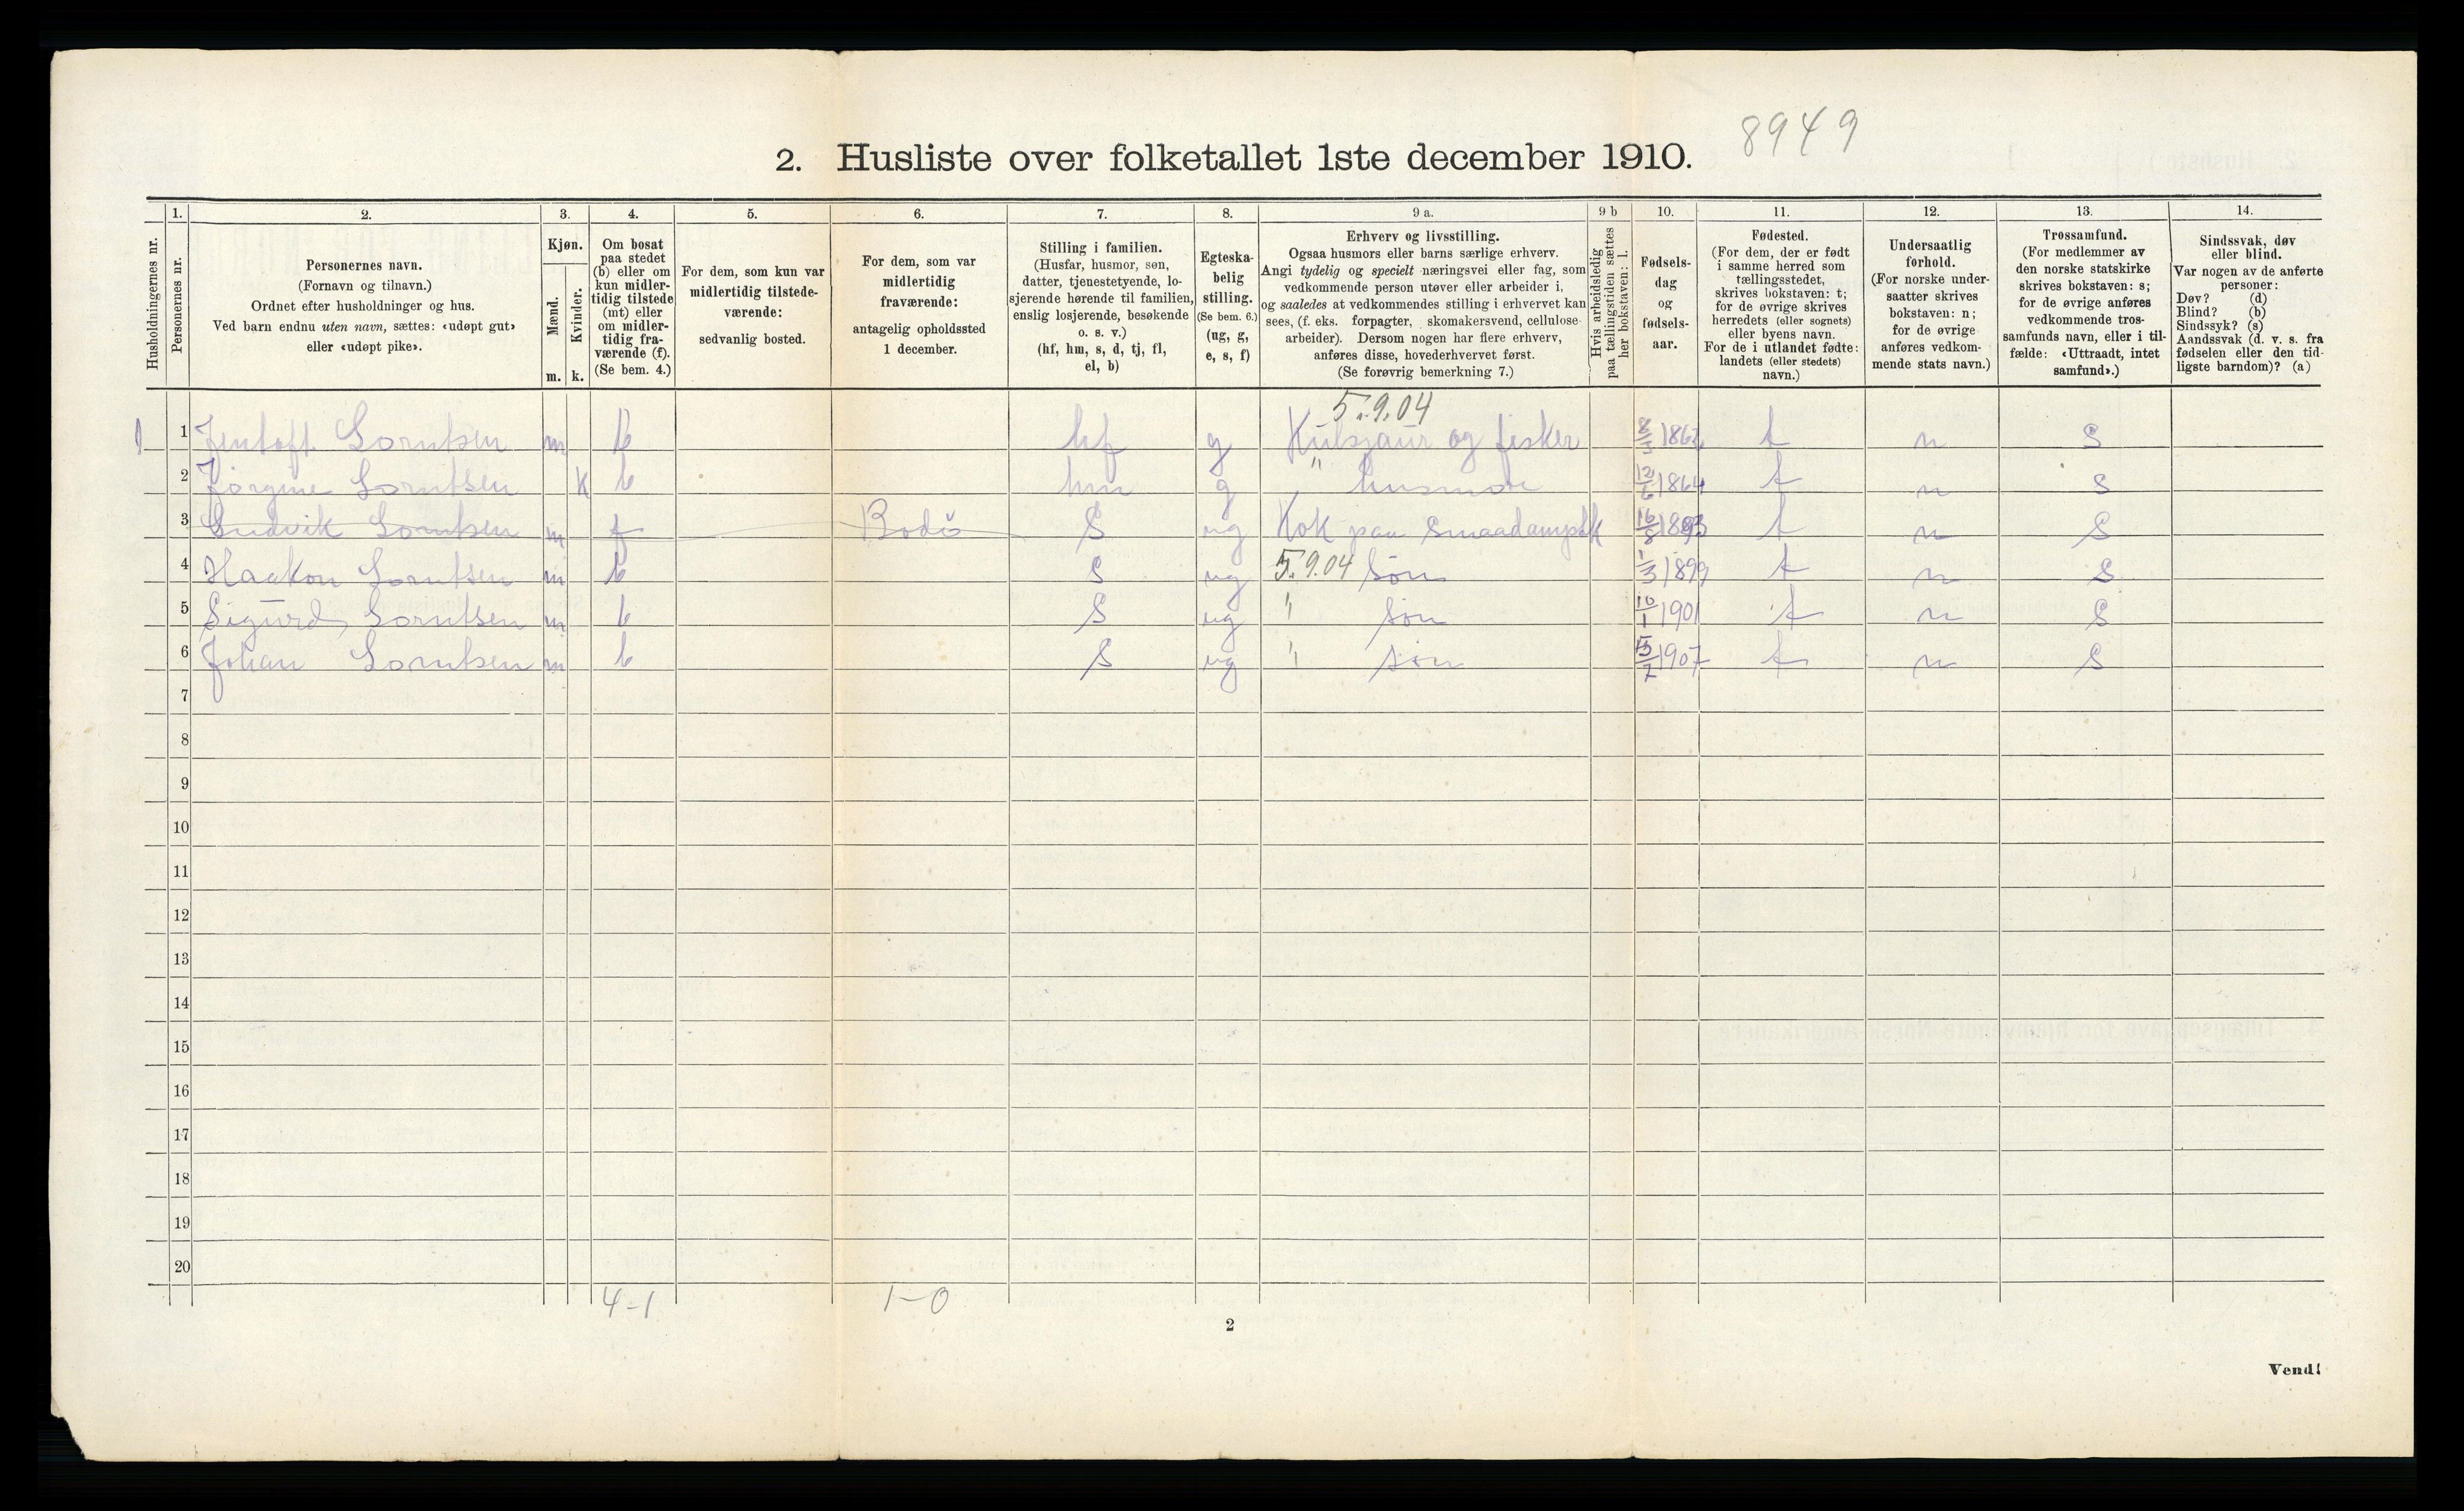 8949
2. Husliste over folketallet 1ste december 1910.
Husholdningernes nr.
1.
Personernes nr.
2.
Personernes navn.
(Fornavn og tilnavn.)
Ordnet efter husholdninger og hus.
Ved barn endnu uten navn, sættes: «udøpt gut»
eller «udøpt pike».
3.
Kjøn.
Mænd.
Kvinder.
m. k.
4.
Om bosat
paa stedet
(b) eller om
kun midler-
tidig tilstede
(mt) eller
om midler-
tidig fra-
værende (f).
(Se bem. 4.)
5.
For dem, som kun var
midlertidig tilstede-
værende:
sedvanlig bosted.
6.
For dem, som var
midlertidig
fraværende:
antagelig opholdssted
1 december.
7.
Stilling i familien.
(Husfar, husmor, søn,
datter, tjenestetyende, lo-
sjerende hørende til familien,
enslig losjerende, besøkende
o. s. v.)
(hf, hm, s, d, tj, fl,
el, b)
8.
Egteska-
belig
stilling.
(Se bem. 6.)
(ug, g,
e, s, f)
9 a.
Erhverv og livsstilling.
Ogsaa husmors eller barns særlige erhverv.
Angi tydelig og specielt næringsvei eller fag, som
vedkommende person utøver eller arbeider i,
og saaledes at vedkommendes stilling i erhvervet kan
sees, (f. eks. forpagter, skomakersvend, cellulose-
arbeider). Dersom nogen har flere erhverv,
anføres disse, hovederhvervet først.
(Se forøvrig bemerkning 7.)
9 b
Hvis arbeidsledig
paa tællingstiden sættes
her bokstaven: l.
10.
Fødsels-
dag
og
fødsels-
aar.
11.
Fødested.
(For dem, der er født
i samme herred som
tællingsstedet,
skrives bokstaven: t;
for de øvrige skrives
herredets (eller sognets)
eller byens navn.
For de i utlandet fødte:
landets (eller stedets)
navn.)
12.
Undersaatlig
forhold.
(For norske under-
saatter skrives
bokstaven: n;
for de øvrige
anføres vedkom-
mende stats navn.)
13.
Trossamfund.
(For medlemmer av
den norske statskirke
skrives bokstaven: s;
for de øvrige anføres
vedkommende tros-
samfunds navn, eller i til-
fælde: «Uttraadt, intet
samfund».)
14.
Sindssvak, døv
eller blind.
Var nogen av de anførte
personer:
Døv? (d)
Blind? (b)
Sindssyk? (s)
Aandssvak (d. v. s. fra
fødselen eller den tid-
ligste barndom)? (a)
5.9.04
1 1 Jentoft Lorntsen m b hf g og fisker t n S
2 Jørgine Lorntsen k b hm g " husmor 12/6 1864 t n S
3 Ludvik Lorntsen m f Bodö S ug Kok paa Smaadampsk 16/8 1893 t n S
4 Haakon Lorntsen m b S ug 5.9.04 Søn 1/3 1899 t n S
5 Sigurd Lorntsen m b S ug " søn 10/1 1901 t n S
6 Johan Lorntsen m b S ug " søn 1907 t n S
7
8
9
10
11
12
13
14
15
16
17
18
19
20
4-1 1-0
2
Vend!